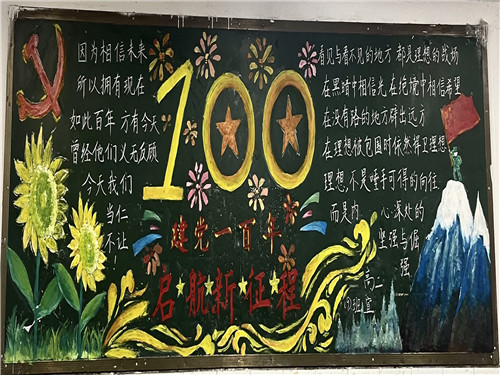 因为相信未来
所以拥有现在
如此百年 方有今天
曾经他们义无反顾
今天我们
当仁
不让
100
建党一百年
启航新征程
看见与看不见的地方 都是理想的战场
在黑暗中相信光,在绝境中相信希望
在没有路的地方辟出远方
在理想被包围时依然捍卫理想
理想,不是唾手可得的向往
而是内 心深处的
坚强与倔
强
高二
班宣